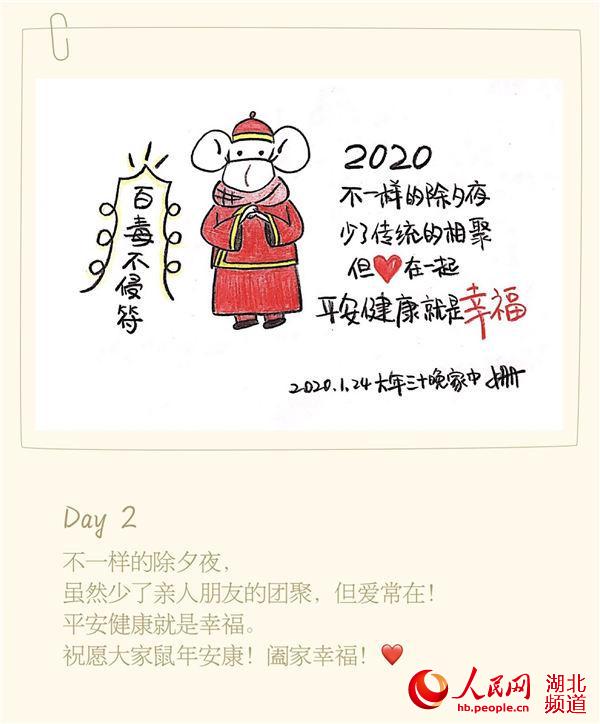 百毒不侵符
2020
不一样的除夕夜
少了传统的相聚
但❤在一起
平安健康就是幸福
2020.1.24大年三十晚家中 姗
Day 2
不一样的除夕夜，
虽然少了亲人朋友的团聚，但爱常在！
平安健康就是幸福。
祝愿大家鼠年安康！阖家幸福！❤
人民网 湖北频道
hb.people.cn